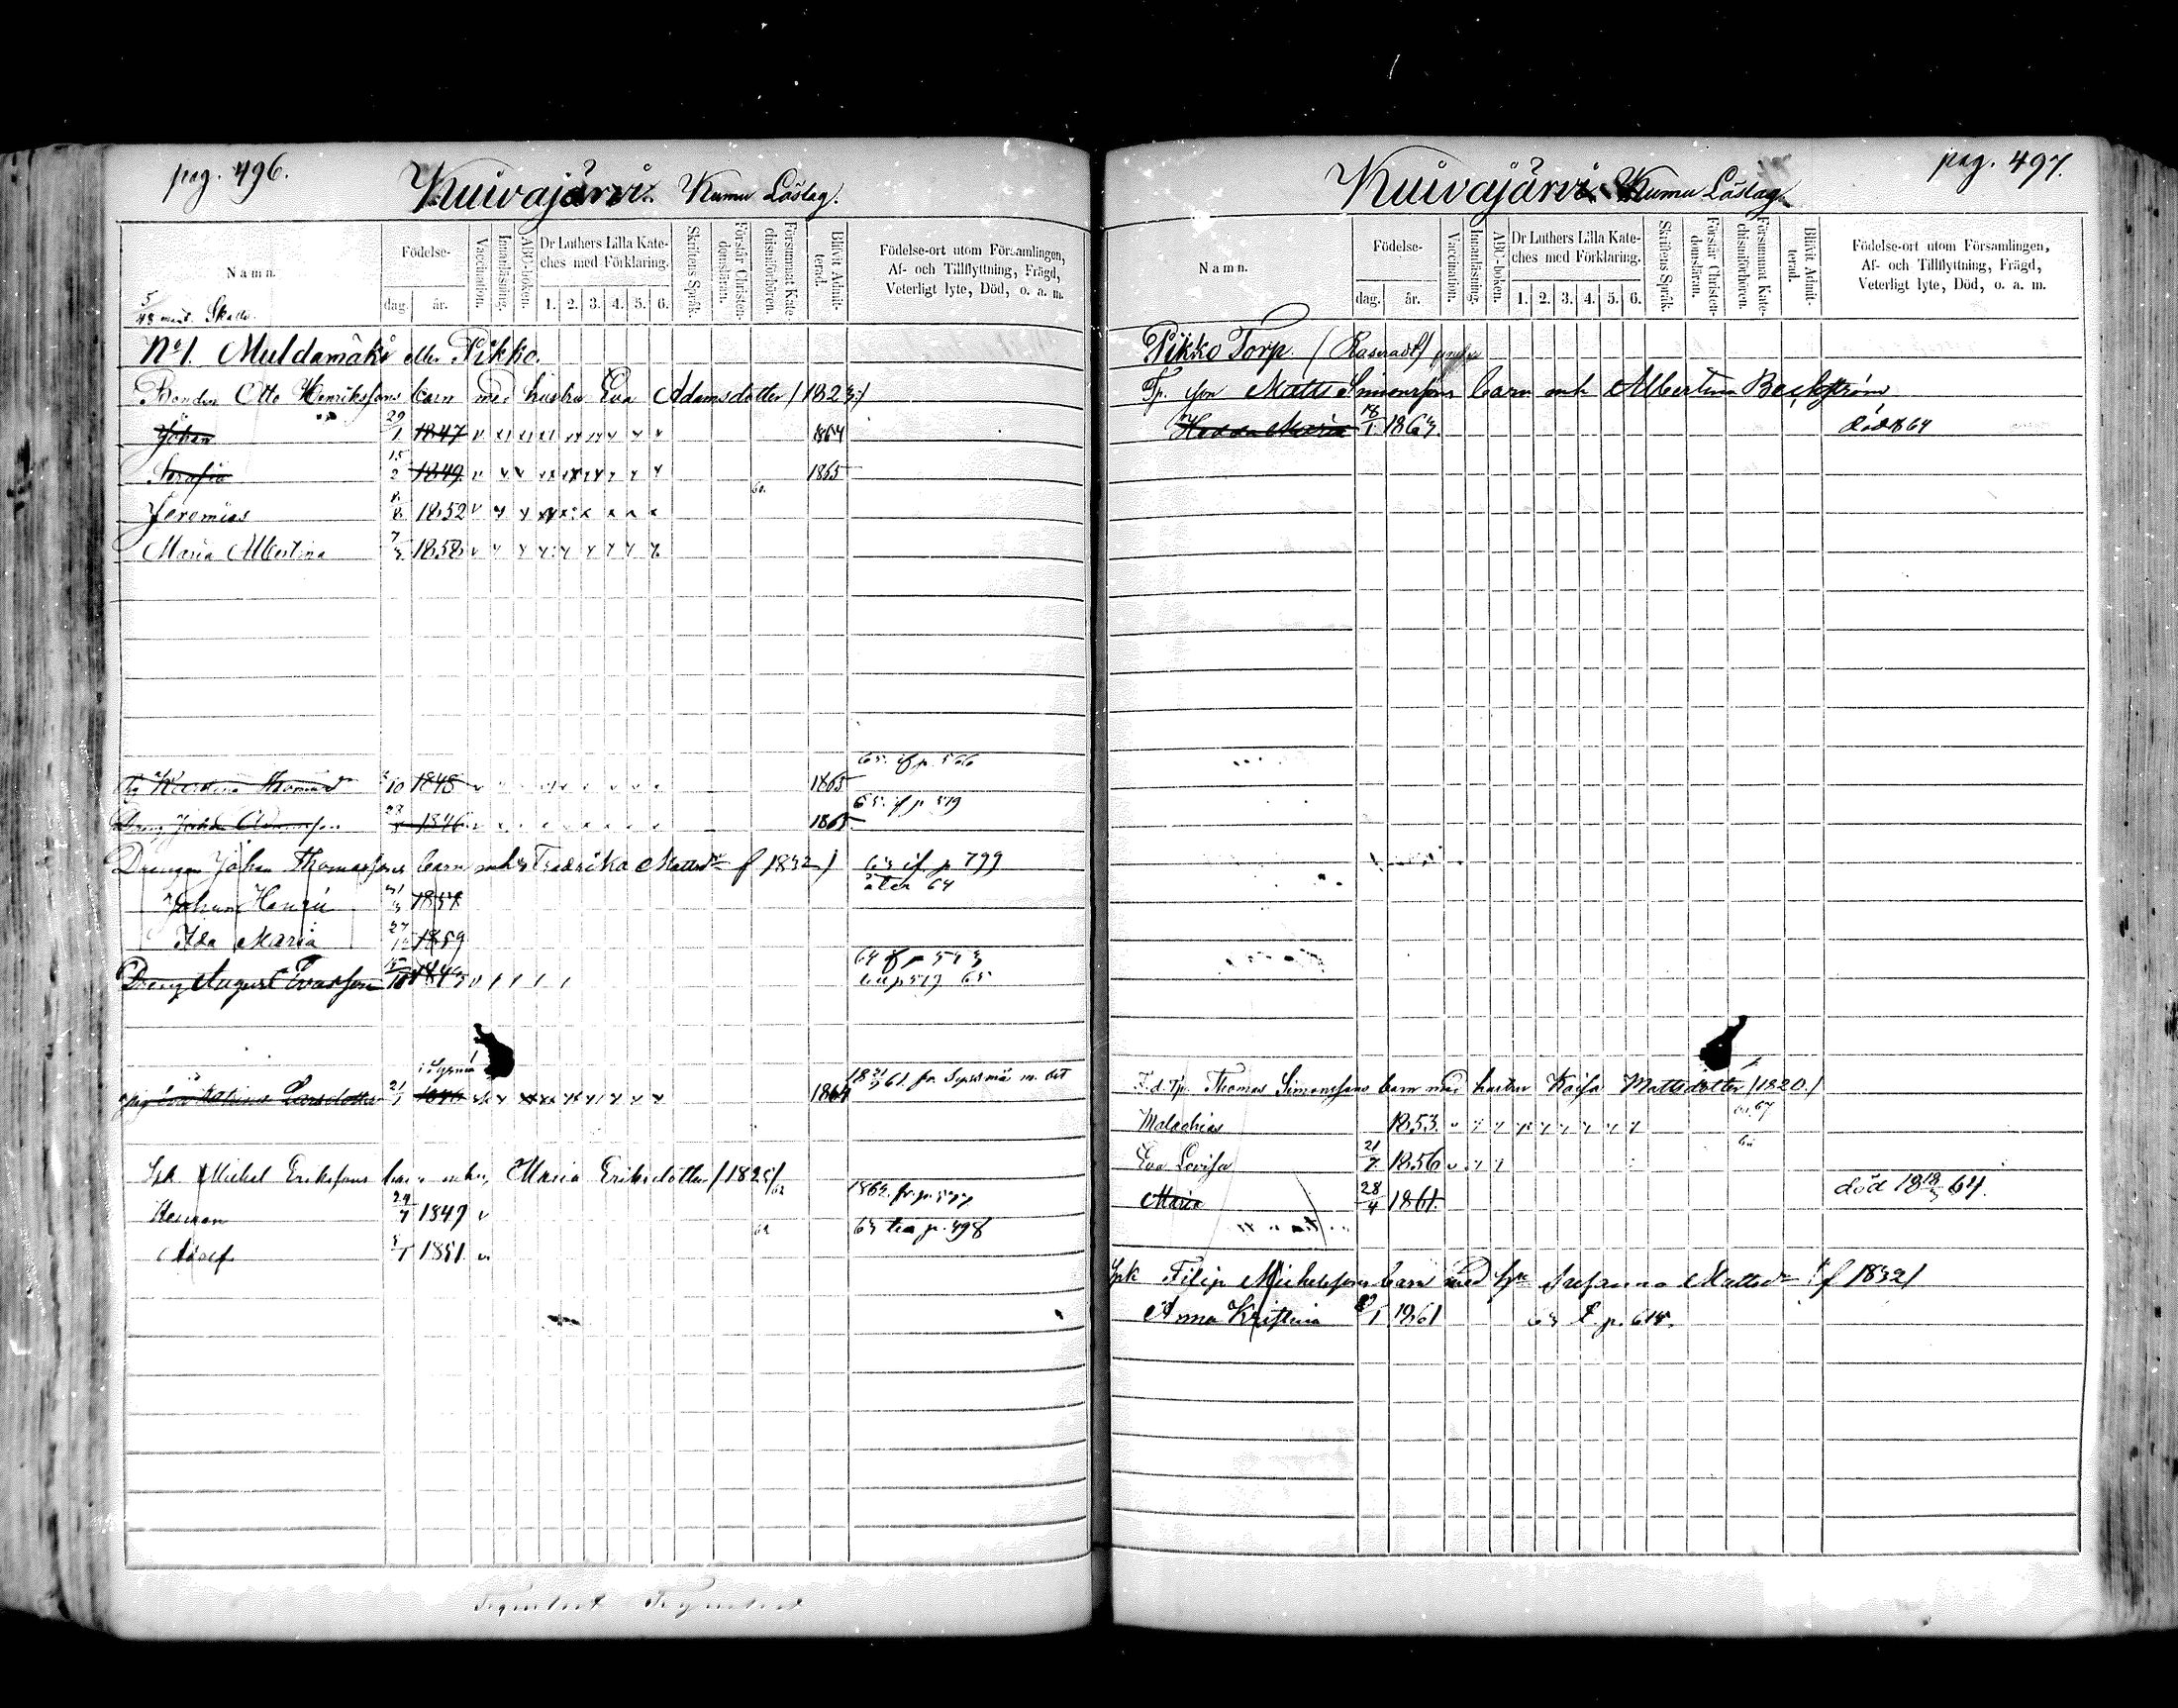 pag. 496.
Kuivajärvi. Kumu Läslag.
Namn.
Födelse-
dag.
år.
Vaccination.
Innanläsning.
ABC-boken.
Dr Luthers Lilla Kate-
ches med Förklaring.
1. 2. 3. 4. 5. 6.
Skriftens Språk.
Förstår Christen-
domsläran.
Försummat Kate-
chismiförhören.
Blifvit Admit-
terad.
Födelse-ort utom Församlingen,
Af- och Tillflyttning, Frägd,
Veterligt lyte, Död, o. a. m.
5/48 mant. Skatte.
No 1. Muldamäki eller Pikko.
Bonden Otto Henrikssons barn med hustru Eva Adamsdotter /1823/
Johan 29/1 1847 1864
Serafia 15/2 1849 1865
Jeremias 1852 60.
Maria Albertina 7/3 1858
65. if p. 566
10 1848 1865
65. if p 519
Dreng Johan Adamsson 1846 1865
Drengen Johan Thomassons barn mhu Fredrika Mattsdr f 1832/ 63 if p 799
åter 64
Johan Henrik 1857
Ida Maria 27/12 1859
64 if p 573
Dreng August Evasson 1845 till p 519 65
i Sysmä
pig Eva Kristina Larsdotter 21/1 1846 1864 18 21/9 61. fr. Sysmä m. bet
Spk Michel Erikssons barn mhu, Maria Eriksdotter /1825/ 62
Herman 24/7 1849 1862. fr. p. 577
Adolf 1851 62 63 till p. 498
pag. 497.
Kuivajärvi. Kumu Läslag.
Namn.
Födelse-
dag.
år.
Vaccination.
Innanläsning.
ABC-boken.
Dr Luthers Lilla Kate-
ches med Förklaring.
1. 2. 3. 4. 5. 6.
Skriftens Språk.
Förstår Christen-
domsläran.
Försummat Kate-
chismiförhören.
Blifvit Admit-
terad.
Födelse-ort utom Församlingen,
Af- och Tillflyttning, Frägd,
Veterligt lyte, Död, o. a. m.
Pikko Torp. (Raseradt)
Tp. son Matts Simonssons barn mh Albertina Beckström
Hedda Maria 18/1 1863. död 1864
F. d. Tp. Thomas Simonssons barn med hustru Kaisa Mattsdotter /1820./
Malachias 1853. 67
Eva Lovisa 21/7 1856
Maria 28/4 1861. död 18 18/3 64.
Spk Filip Michelssons barn med hu Susanna Mattsdr /f 1832/
Anna Kristina 1861 63 t. p. 615.